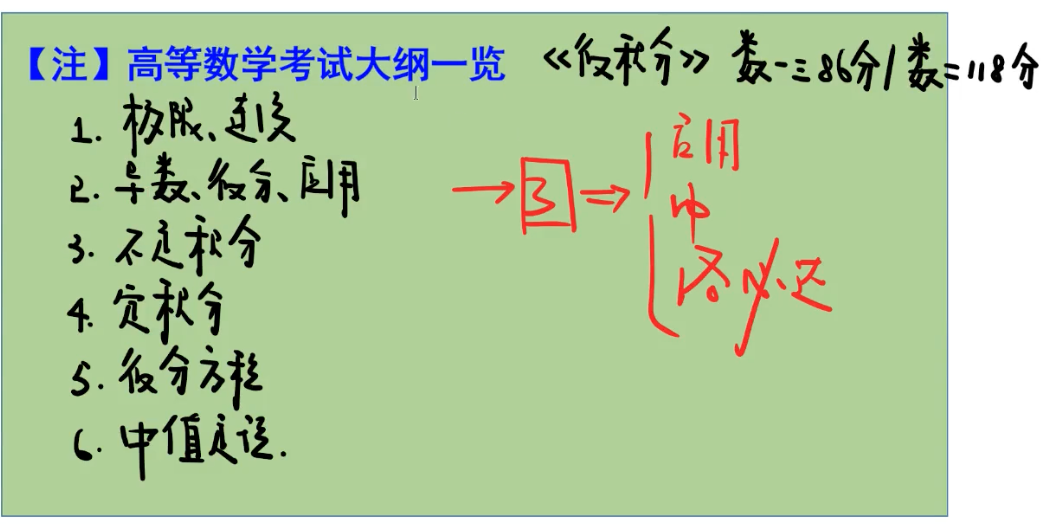 【注】高等数学考试大纲一览 《微积分》 数一三86分/数二118分
1. 极限、连续
2. 导数、微分、应用
3. 不定积分
4. 定积分
5. 微分方程
6. 中值定理.
→ 3 ⇒
应用
中
洛必达